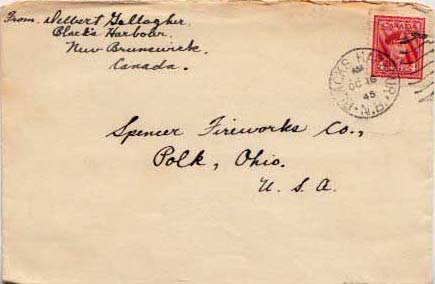 From. Delbert Gallagher.
Black's Harbour.
New Brunswick.
Canada.
CANADA
BLACKS HARBOUR · N.B.
AM
OC 16
45
Spencer Fireworks Co.,
Polk, Ohio.
U. S. A.